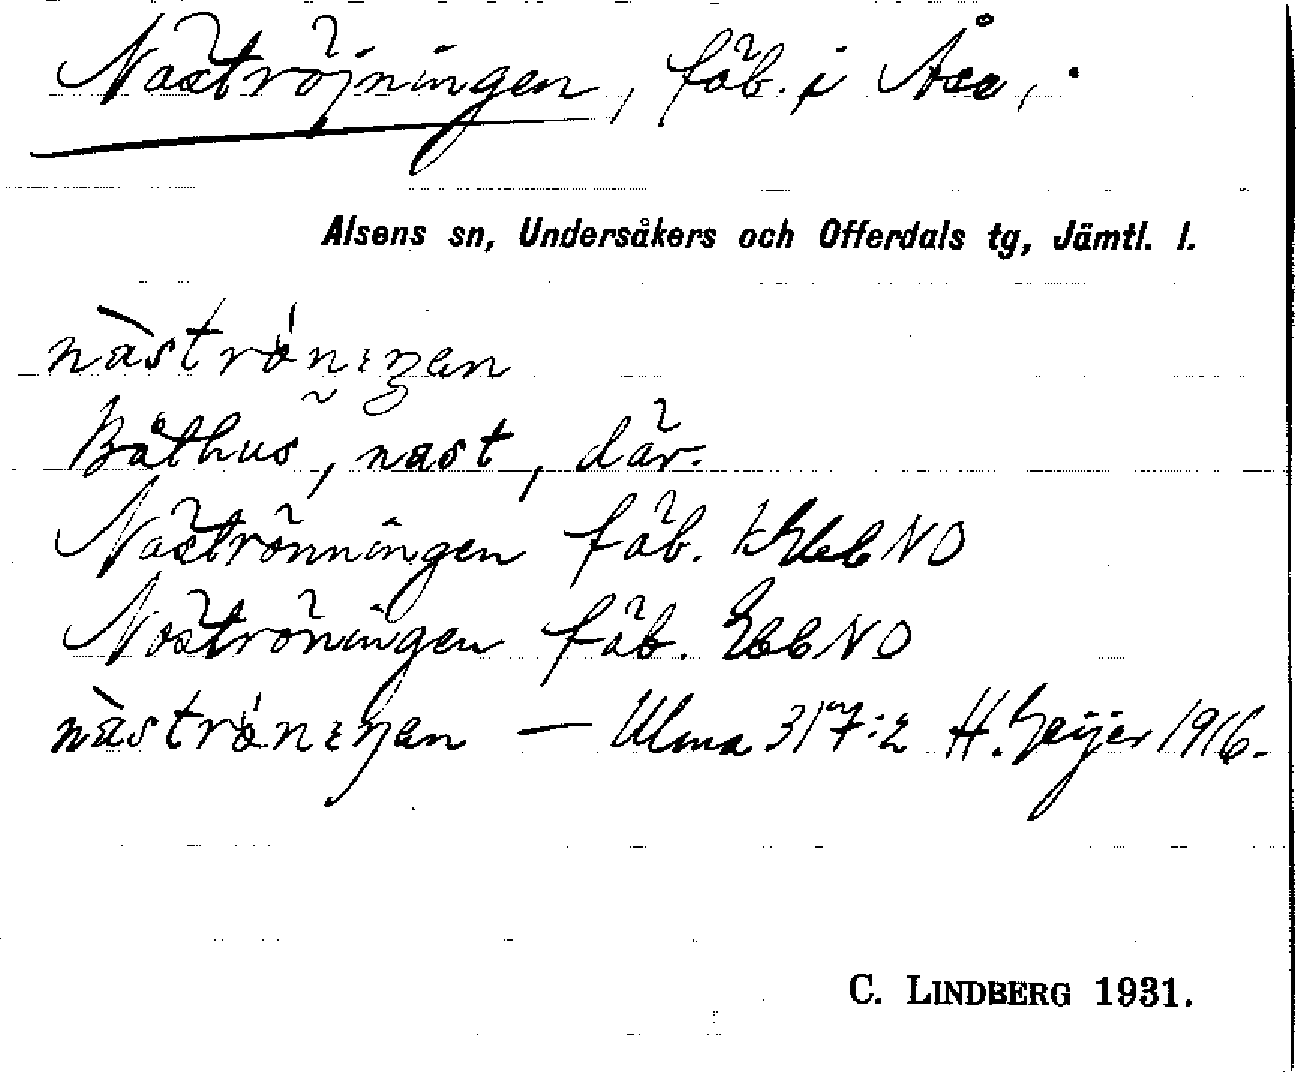 Naströjningen, fäb. i Åse,.
Alsens sn, Undersåkers och Offerdals tg, Jämtl. l.
nàströ́nıŋen
Båthus, nast, där.
Naströnningen fäb. EbbNO
Noströningen fäb. EbbNO
nàströ́nıŋen — Ulma 317:2 H. Geijer 1916.
C. LINDBERG 1931.